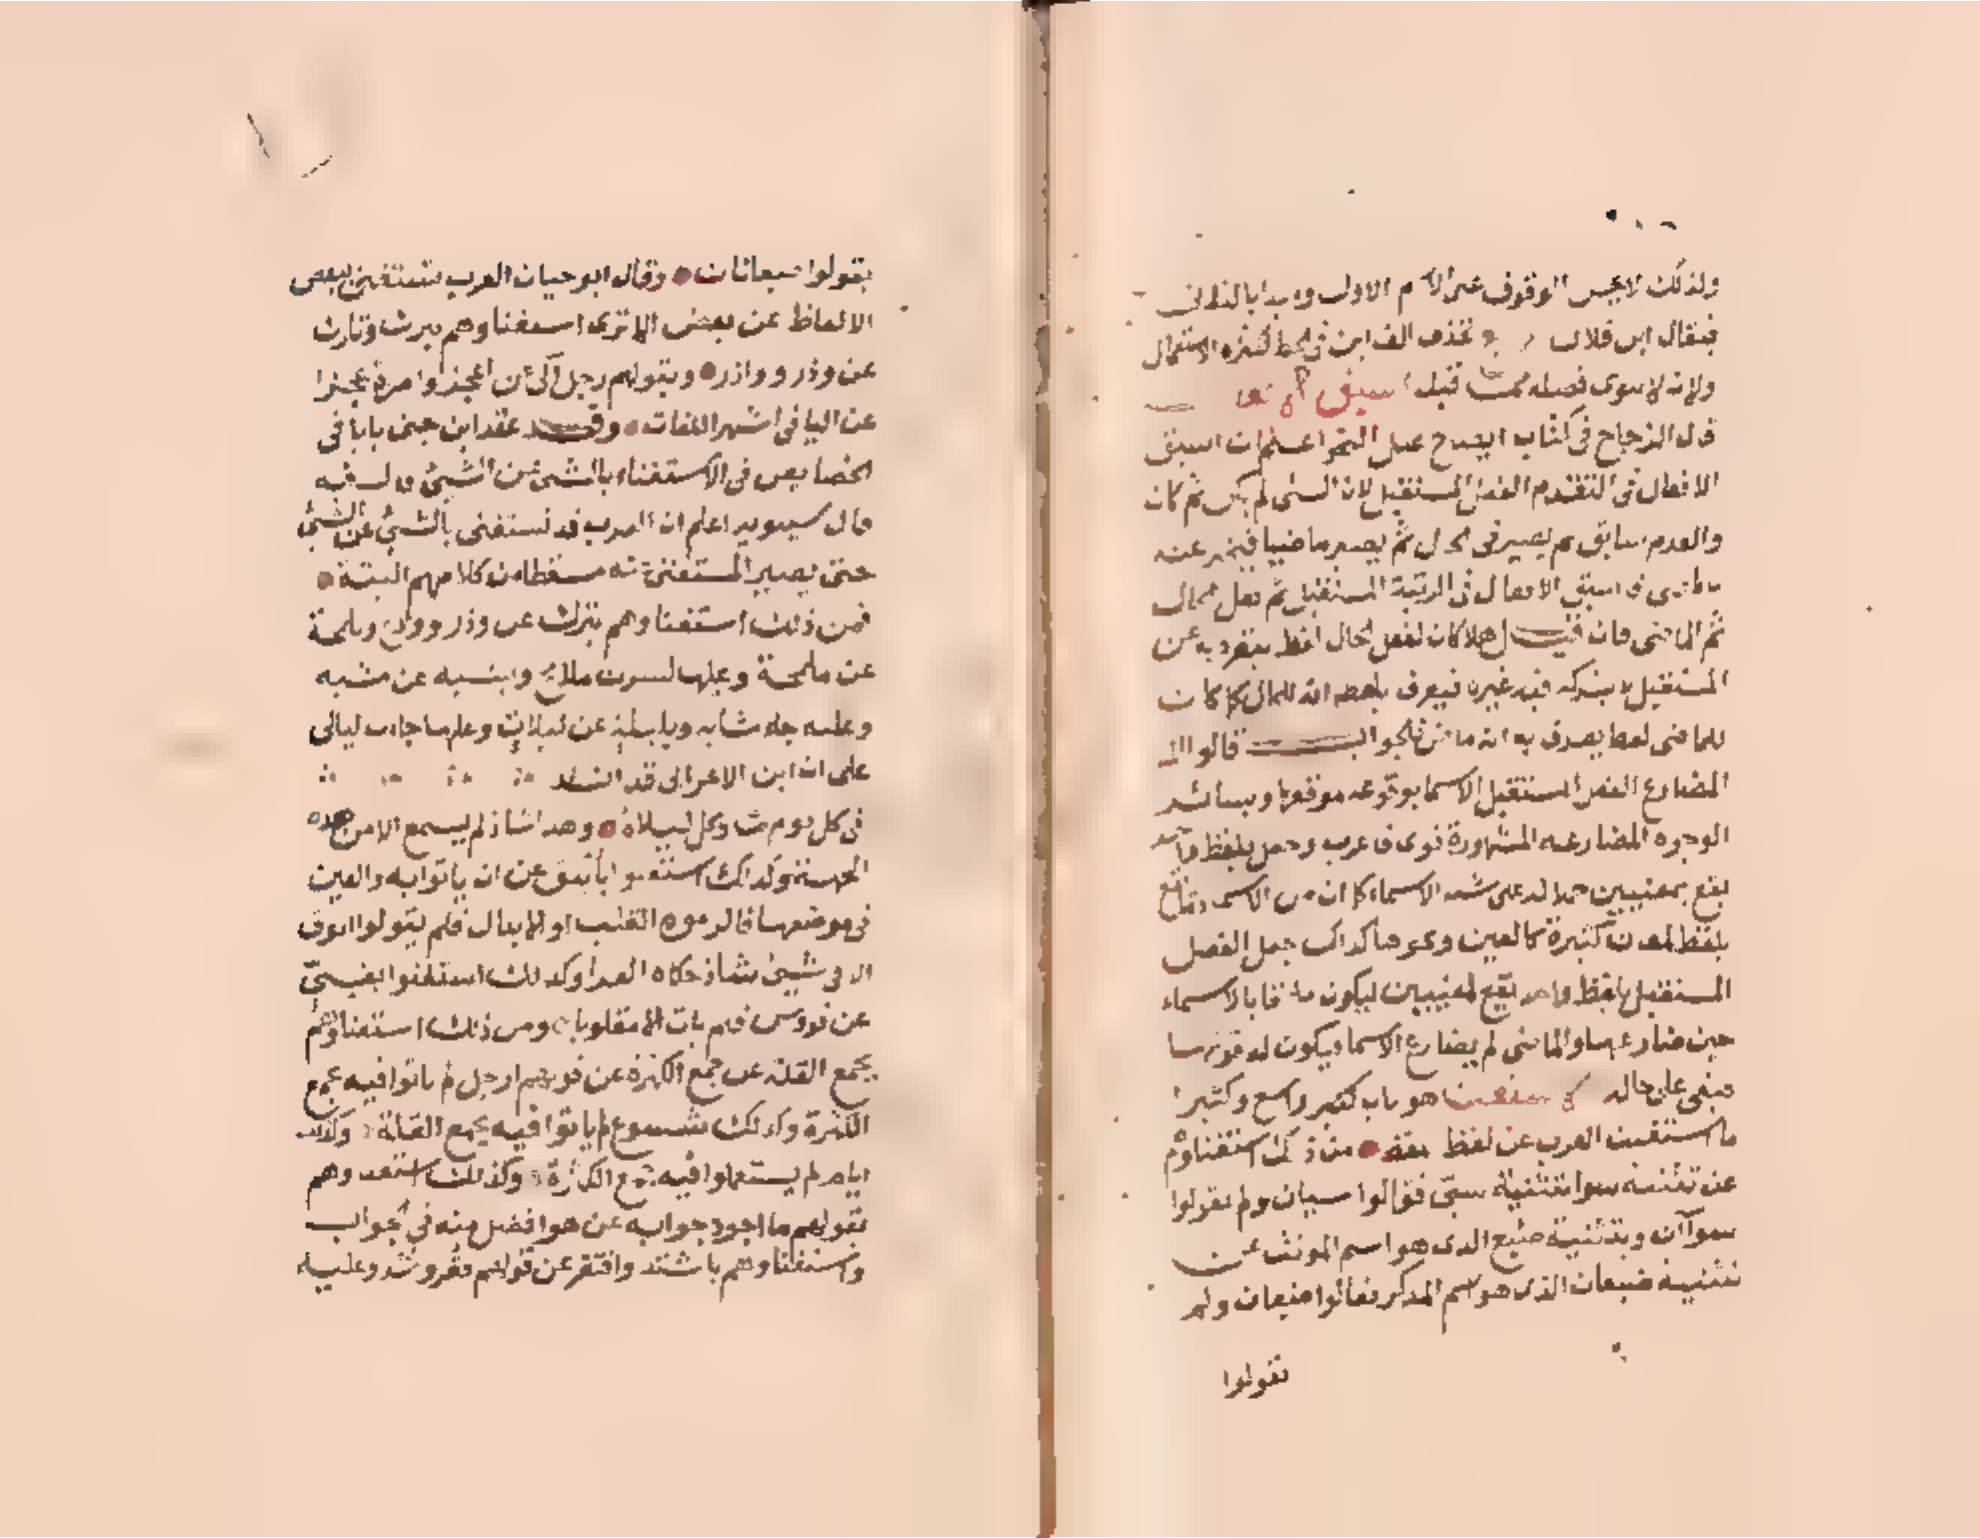 ولذلك لا يجس الوقوف على الاسم الاول ويبدا بالثانى
فيقال ابن فلان تحذف الف ابن فى الخط لكثرة الاستعمال
ولانه لا ينوى فصله مما قبله اسبق الافعال
قال الزجاج فى كتاب ايضاح علل النحو اعلم ان اسبق
الافعال فى التقدم الفعل المستقبل لان الشى لم يكن ثم كان
والعدم سابق ثم يصير فى الحال ثم يصير ماضيا فيخبر عنه
بالماضى فاسبق الافعال فى الرتبة المستقبل ثم فعل الحال
ثم الماضى فان قيل هلا كان لفعل الحال لفظ ينفرد به عن
المستقبل لا يشركه فيه غيره فيعرف بلفظه انه للحال كما كان
للماضى لفظ يعرف به انه ماض فالجواب قالوا لما
المضارع الفعل المستقبل الاسما بوقوعه موقعها وبسائر
الوجوه المضارعه المشهورة قوى فاعرب وجعل بلفظ واحد
يقع بمعنيين حملا له على شبه الاسماء كما ان من الاسما ما يقع
بلفظ لمعان كثيرة كالعين ونحوها كذلك جعل الفعل
المستقبل بلفظ واحد يقع لمعنيين ليكون ملحقا بالاسماء
حين ضارعها والماضى لم يضارع الاسما فيكون له قوتها
فبقى على حاله الاستغناء هو باب كثير واسع وكثيرا
ما استغنت العرب عن لفظ بلفظ من ذلك استغناؤهم
عن تثنية سوا بتثنية سى فقالوا سيان ولم يقولوا
سواآن وبتثنية ضبع الذى هو اسم المونث عن
تثنية ضبعان الذى هو اسم المذكر فقالوا ضبعان ولم
تقولوا
يقولوا ضبعانان وقال ابو حيان العرب تستغنى ببعض
الالفاظ عن بعض الا ترى استغناوهم بترك وتارك
عن وذر وواذر وبقولهم رجل آلى عن اعجز وامرة عجزا
عن اليا فى اشهر اللغات وقد عقد ابن جنى بابا فى
الخصايص فى الاستغناء بالشئ عن الشئ قال فيه
قال سيبويه اعلم ان العرب قد تستغنى بالشئ عن الشئ
حتى يصير المستغنى عنه مسقطا من كلامهم البتة
فمن ذلك استغناوهم بترك عن وذر وودع وبلمحة
عن ملمحة وعليها كسرت ملامح وبشبه عن مشبه
وعليه جاء مشابه وبليلة عن ليلاة وعليها جات ليالى
على ان ابن الاعرابى قد انشد
فى كل يوم ما وكل ليلاه وهذا شاذ لم يسمع الا من هذه
الجهة وكذلك استغنوا باينق عن ان ياتوا به والعين
فى موضعها فالزموه القلب او الابدال فلم يقولوا انوق
الا فى شيئ شاذ حكاه الفرا وكذلك استغنوا بقسى
عن قووس فلم يات الا مقلوبا ومن ذلك استغناوهم
بجمع القلة عن جمع الكثرة عن قولهم ارجل لم ياتوا فيه بجمع
الكثرة وكذلك شسوع لم ياتوا فيه بجمع القلة وكذلك
ايام لم يستعملوا فيه جمع الكثرة وكذلك استغنـ وهم
بقولهم ما اجود جوابه عن هو افضل منه فى الجواب
واستغناوهم باشتد وافتقر عن قولهم فقر وشد وعليه